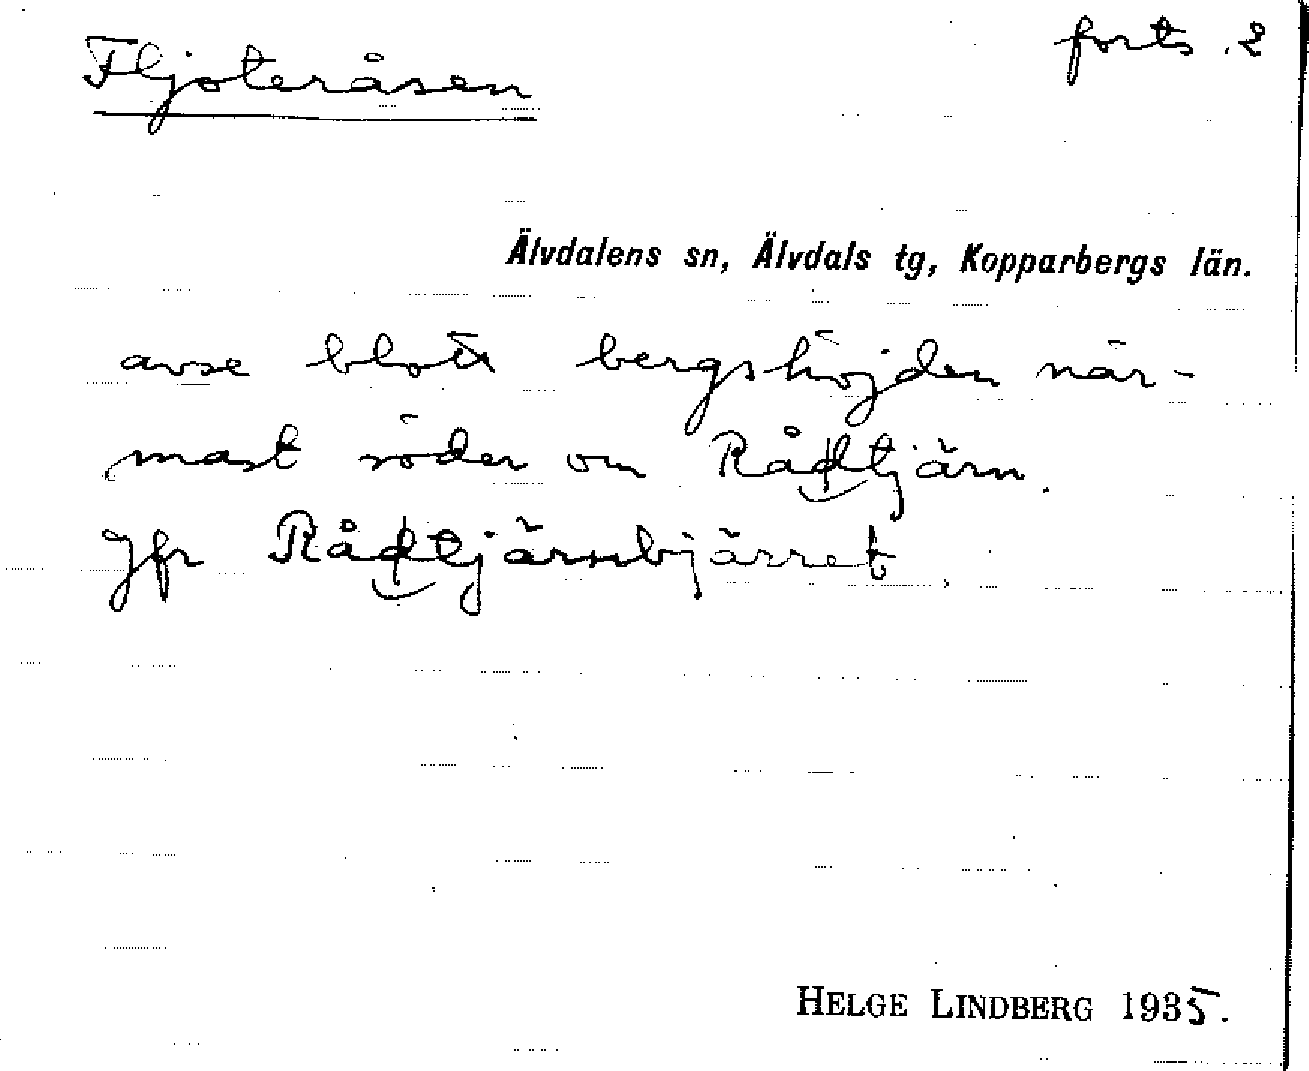 Fljoteråsen
forts. 2
Älvdalens sn, Älvdals tg, Kopparbergs län.
avse blott bergshöjden när-
mast söder om Rådtjärn.
Jfr Rådtjärnbjärret
HELGE LINDBERG 1935.